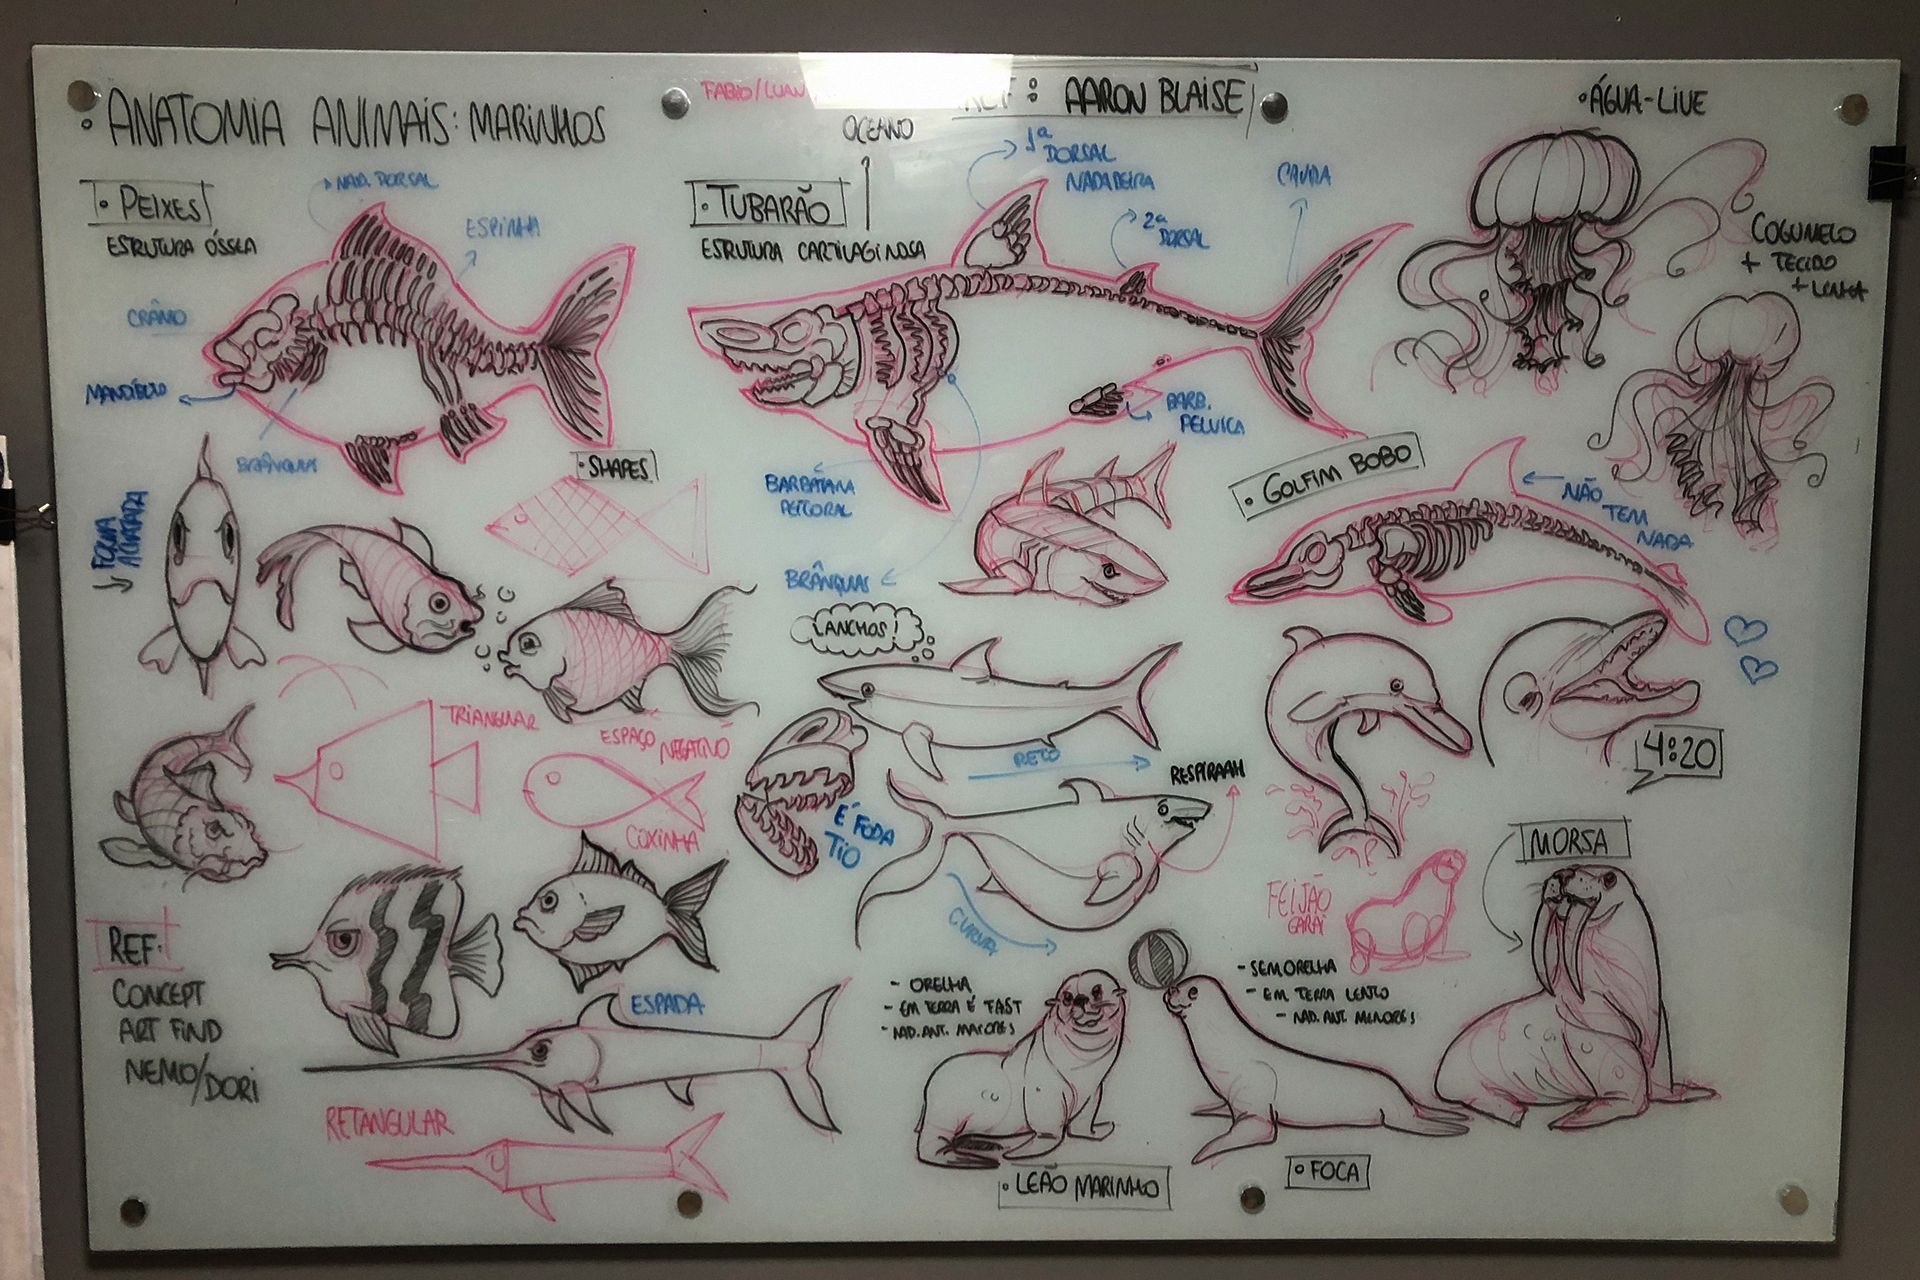 • ANATOMIA ANIMAIS: MARINHOS
FABIO/LUAN
OCEANO
: AARON BLAISE
• ÁGUA-LIVE
• PEIXES
ESTRUTURA ÓSSEA
NAD. DORSAL
ESPINHA
CRÂNIO
BRÂNQUIAS
• TUBARÃO
ESTRUTURA CARTILAGINOSA
1ª
DORSAL
NADADEIRA
2ª
DORSAL
CAUDA
BARB.
PELVICA
BARBATANA
PEITORAL
BRÂNQUIAS
COGUMELO
+ TECIDO
+ LINHA
• SHAPES
FORMA
ACHATADA
TRIANGULAR
ESPAÇO NEGATIVO
COXINHA
LANCHOS!
RETO
RESPIRAAH
É FODA
TIO
CURVA
• GOLFIM BOBO
NÃO
TEM
NADA
4:20
REF:
CONCEPT
ART FIND
NEMO/DORI
ESPADA
RETANGULAR
- ORELHA
- EM TERRA É FAST
- NAD. ANT. MAIORES
• LEÃO MARINHO
FEIJÃO
GARAI
- SEM ORELHA
- EM TERRA LENTO
- NAD. ANT. MENORES
• FOCA
MORSA